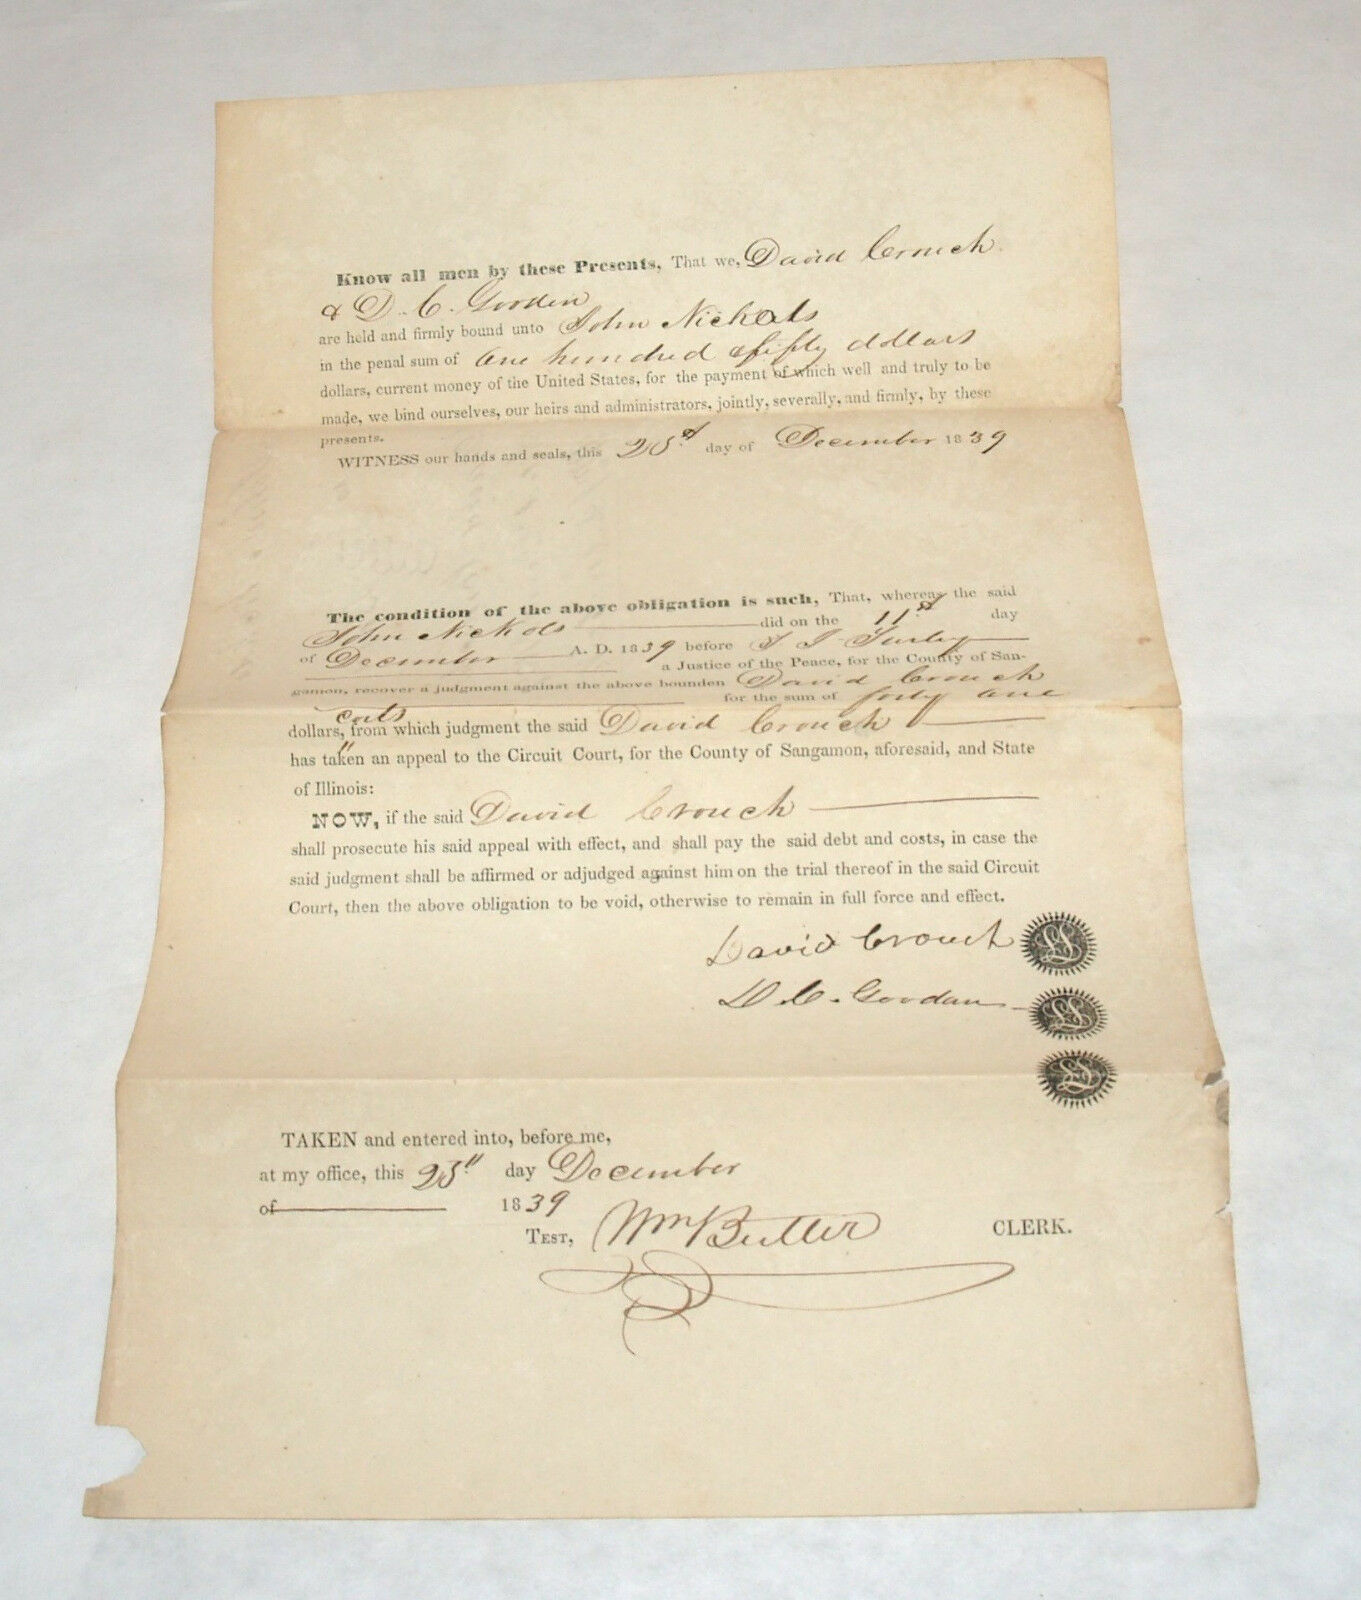 Know all men by these Presents, That we, David Crouch
& D. C. Gooden
are held and firmly bound unto John Nickols
in the penal sum of one hundred & fifty dollars
dollars, current money of the United States, for the payment of which well and truly to be
made, we bind ourselves, our heirs and administrators, jointly, severally, and firmly, by these
presents.
WITNESS our hands and seals, this day of December 1839
The condition of the above obligation is such, That, whereas the said
John Nickols did on the 11st day
of December A. D. 1839 before
a Justice of the Peace, for the County of San-
gamon, recover a judgment against the above bounden David Crouch
for the sum of forty one
costs
dollars, from which judgment the said David Crouch
has taken an appeal to the Circuit Court, for the County of Sangamon, aforesaid, and State
of Illinois:
NOW, if the said David Crouch
shall prosecute his said appeal with effect, and shall pay the said debt and costs, in case the
said judgment shall be affirmed or adjudged against him on the trial thereof in the said Circuit
Court, then the above obligation to be void, otherwise to remain in full force and effect.
David Crouch LS
D. C. Goodan LS
LS
TAKEN and entered into, before me,
at my office, this day December
of 1839
TEST, Wm Butler CLERK.